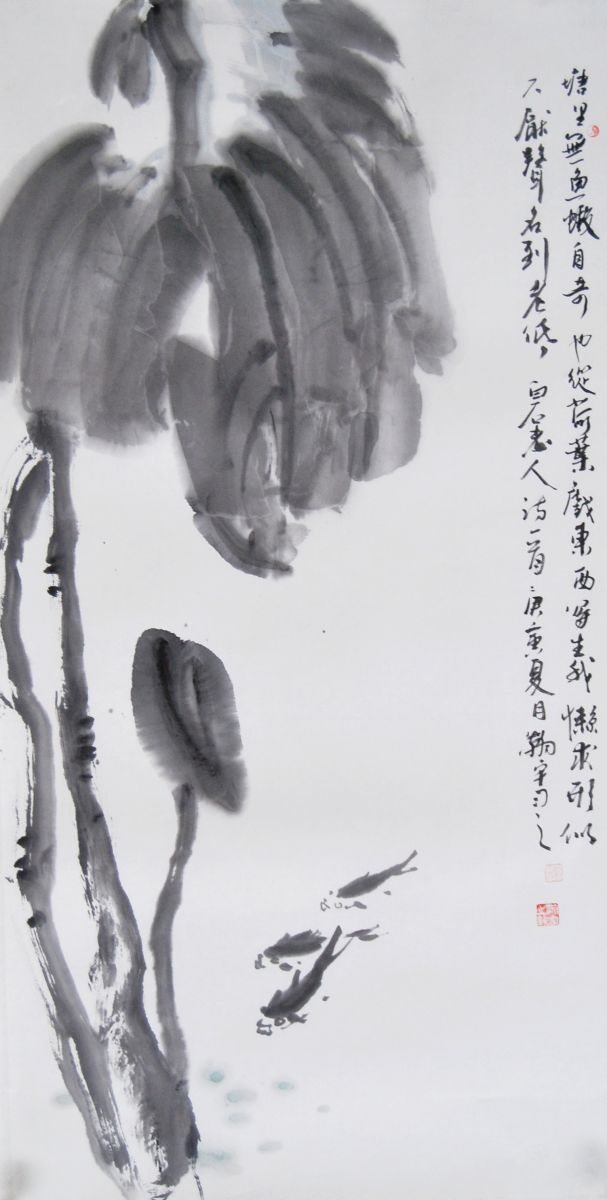 塘里無魚蝦自奇也從荷葉戲東西寫生我懶求形似
不厭聲名到老低 白石老人詩一首庚寅夏月